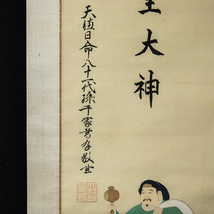 主大神
天穂日命八十一代孫千家尊敬書